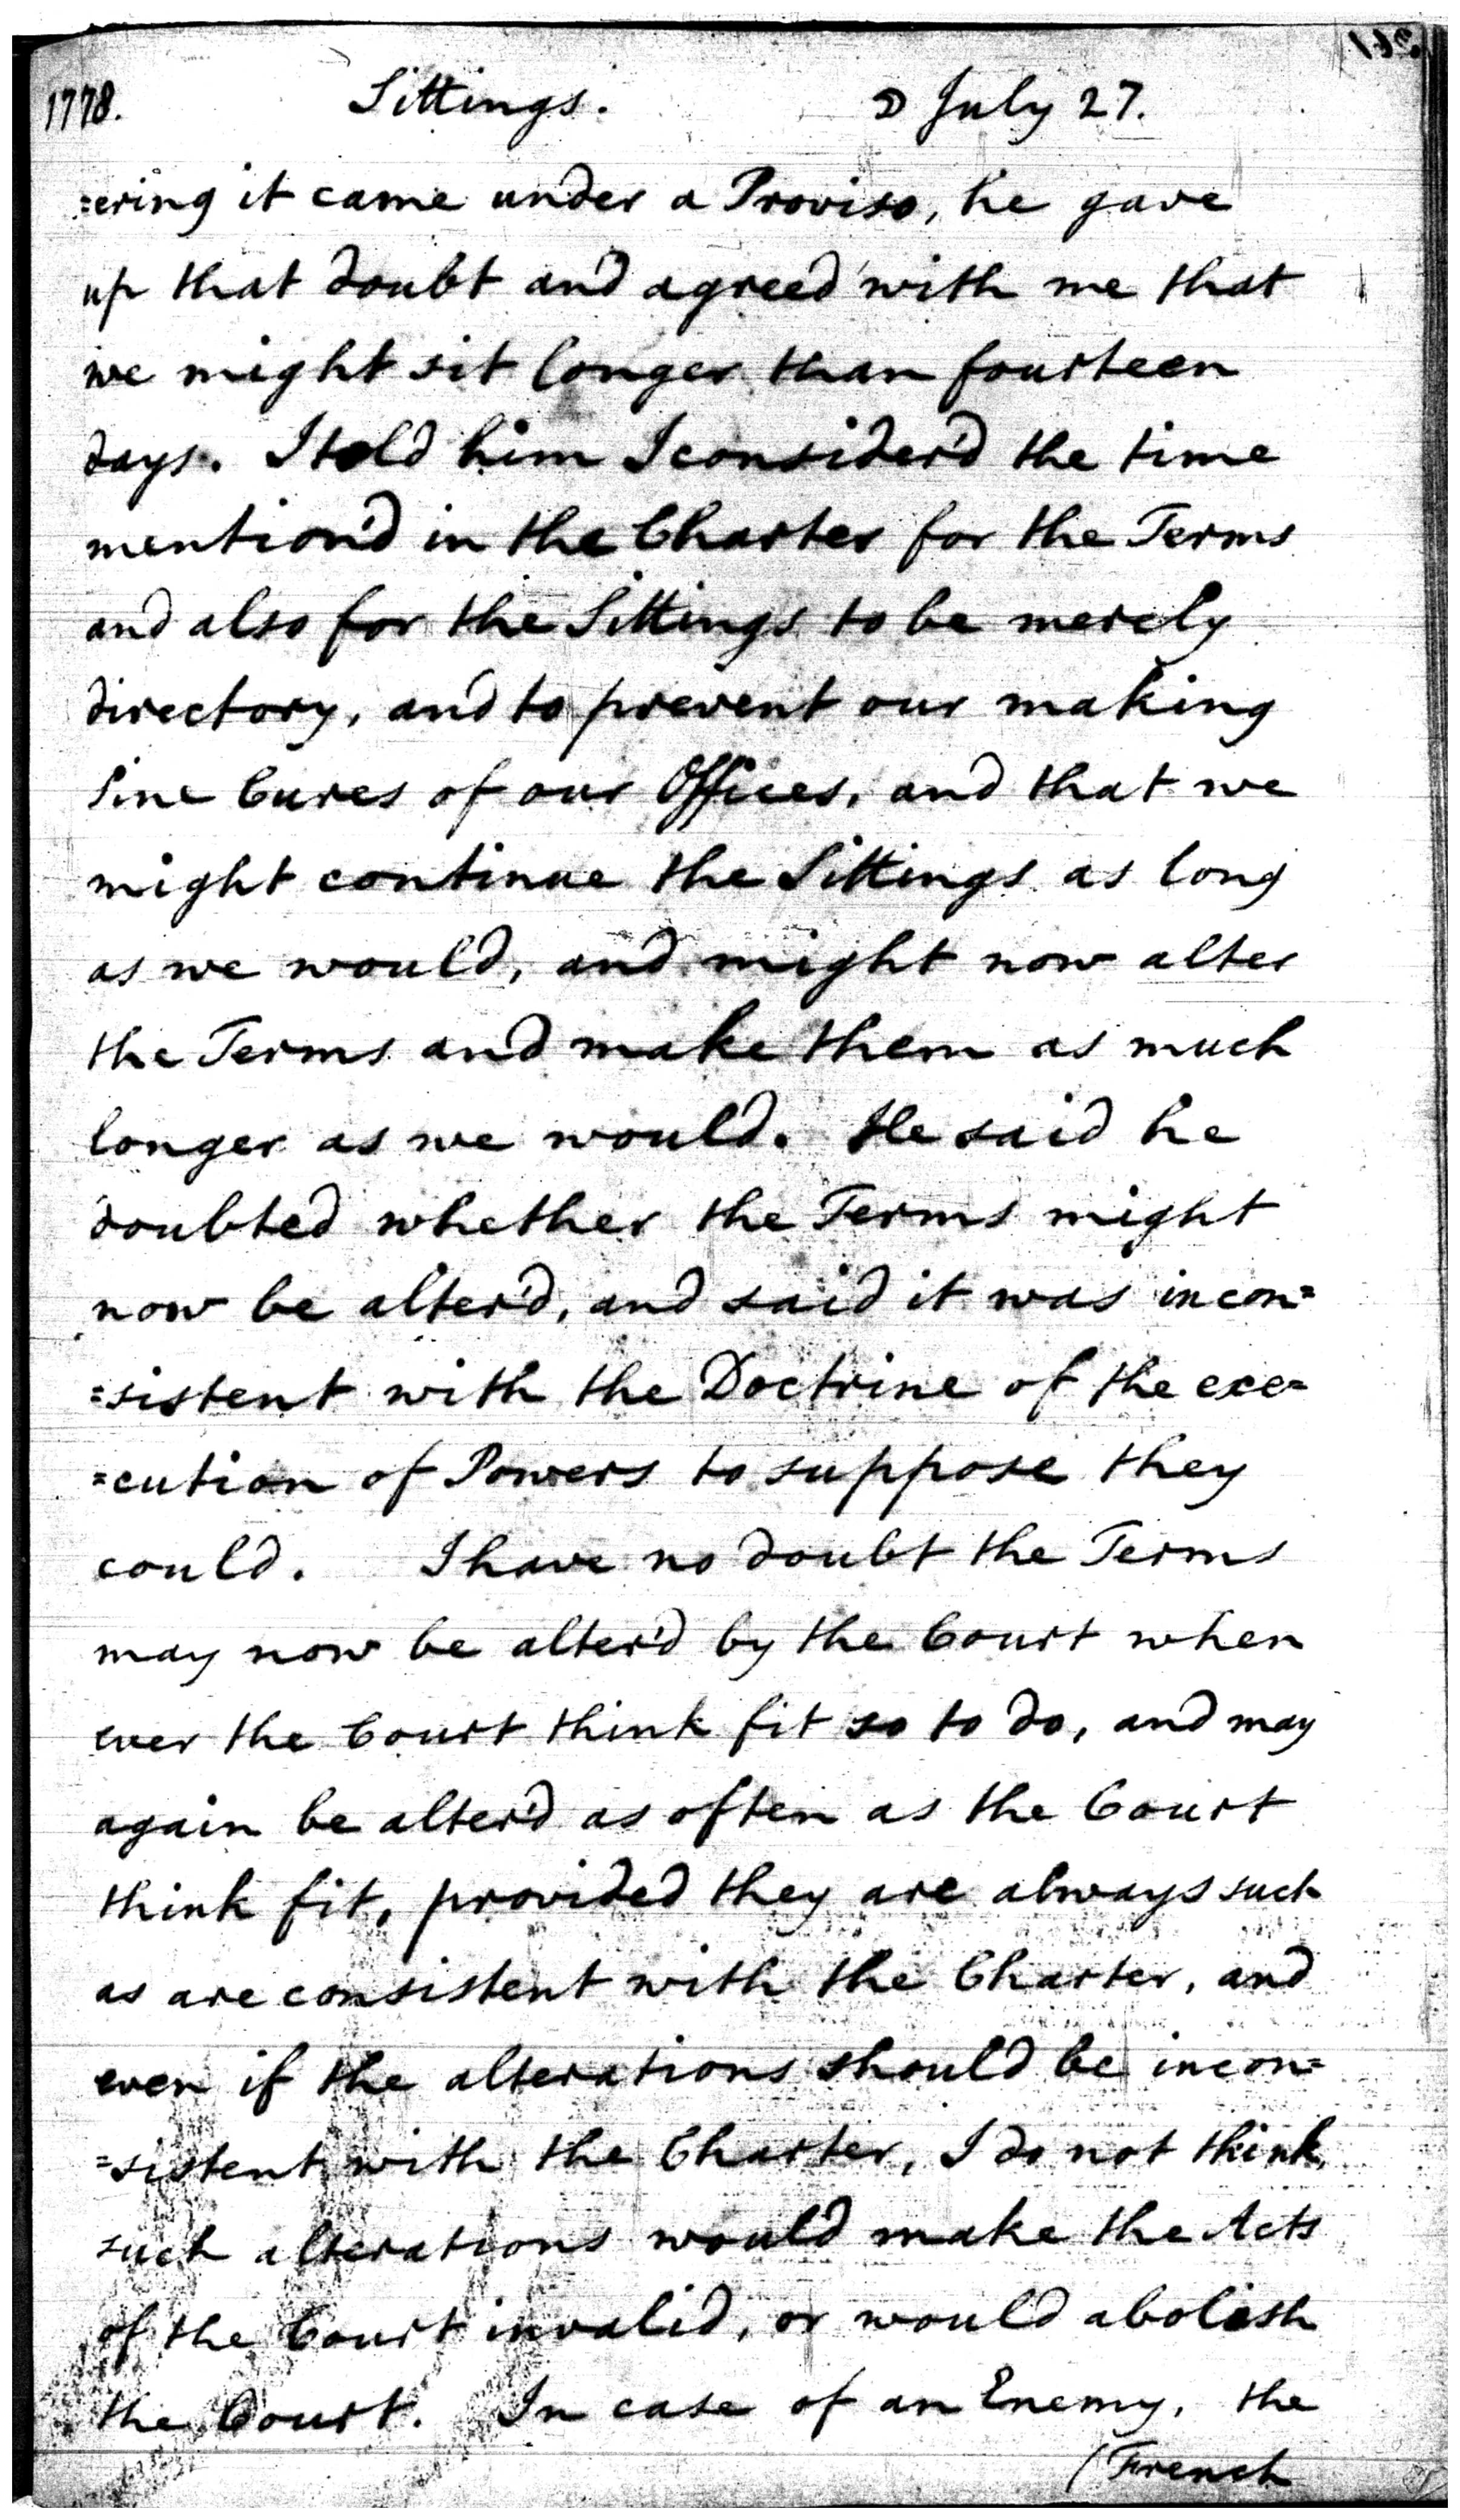 1778. Sittings. ☽ July 27.
=ering it came under a Proviso, he gave
up that doubt and agreed with me that
we might sit longer than fourteen
days. I told him I consider'd the time
mention'd in the Charter for the Terms
and also for the Sittings to be merely
directory, and to prevent our making
Sine Cures of our Offices, and that we
might continue the Sittings as long
as we would, and might now alter
the Terms and make them as much
longer as we would. He said he
doubted whether the Terms might
now be alter'd, and said it was incon=
=sistent with the Doctrine of the exe=
=cution of Powers to suppose they
could. I have no doubt the Terms
may now be alter'd by the Court when
ever the Court think fit so to do, and may
again be alter'd as often as the Court
think fit, provided they are always such
as are consistent with the Charter, and
even if the alterations should be incon=
=sistent with the Charter, I do not think
such alterations would make the Acts
of the Court invalid, or would abolish
the Court. In case of an Enemy, the
(French